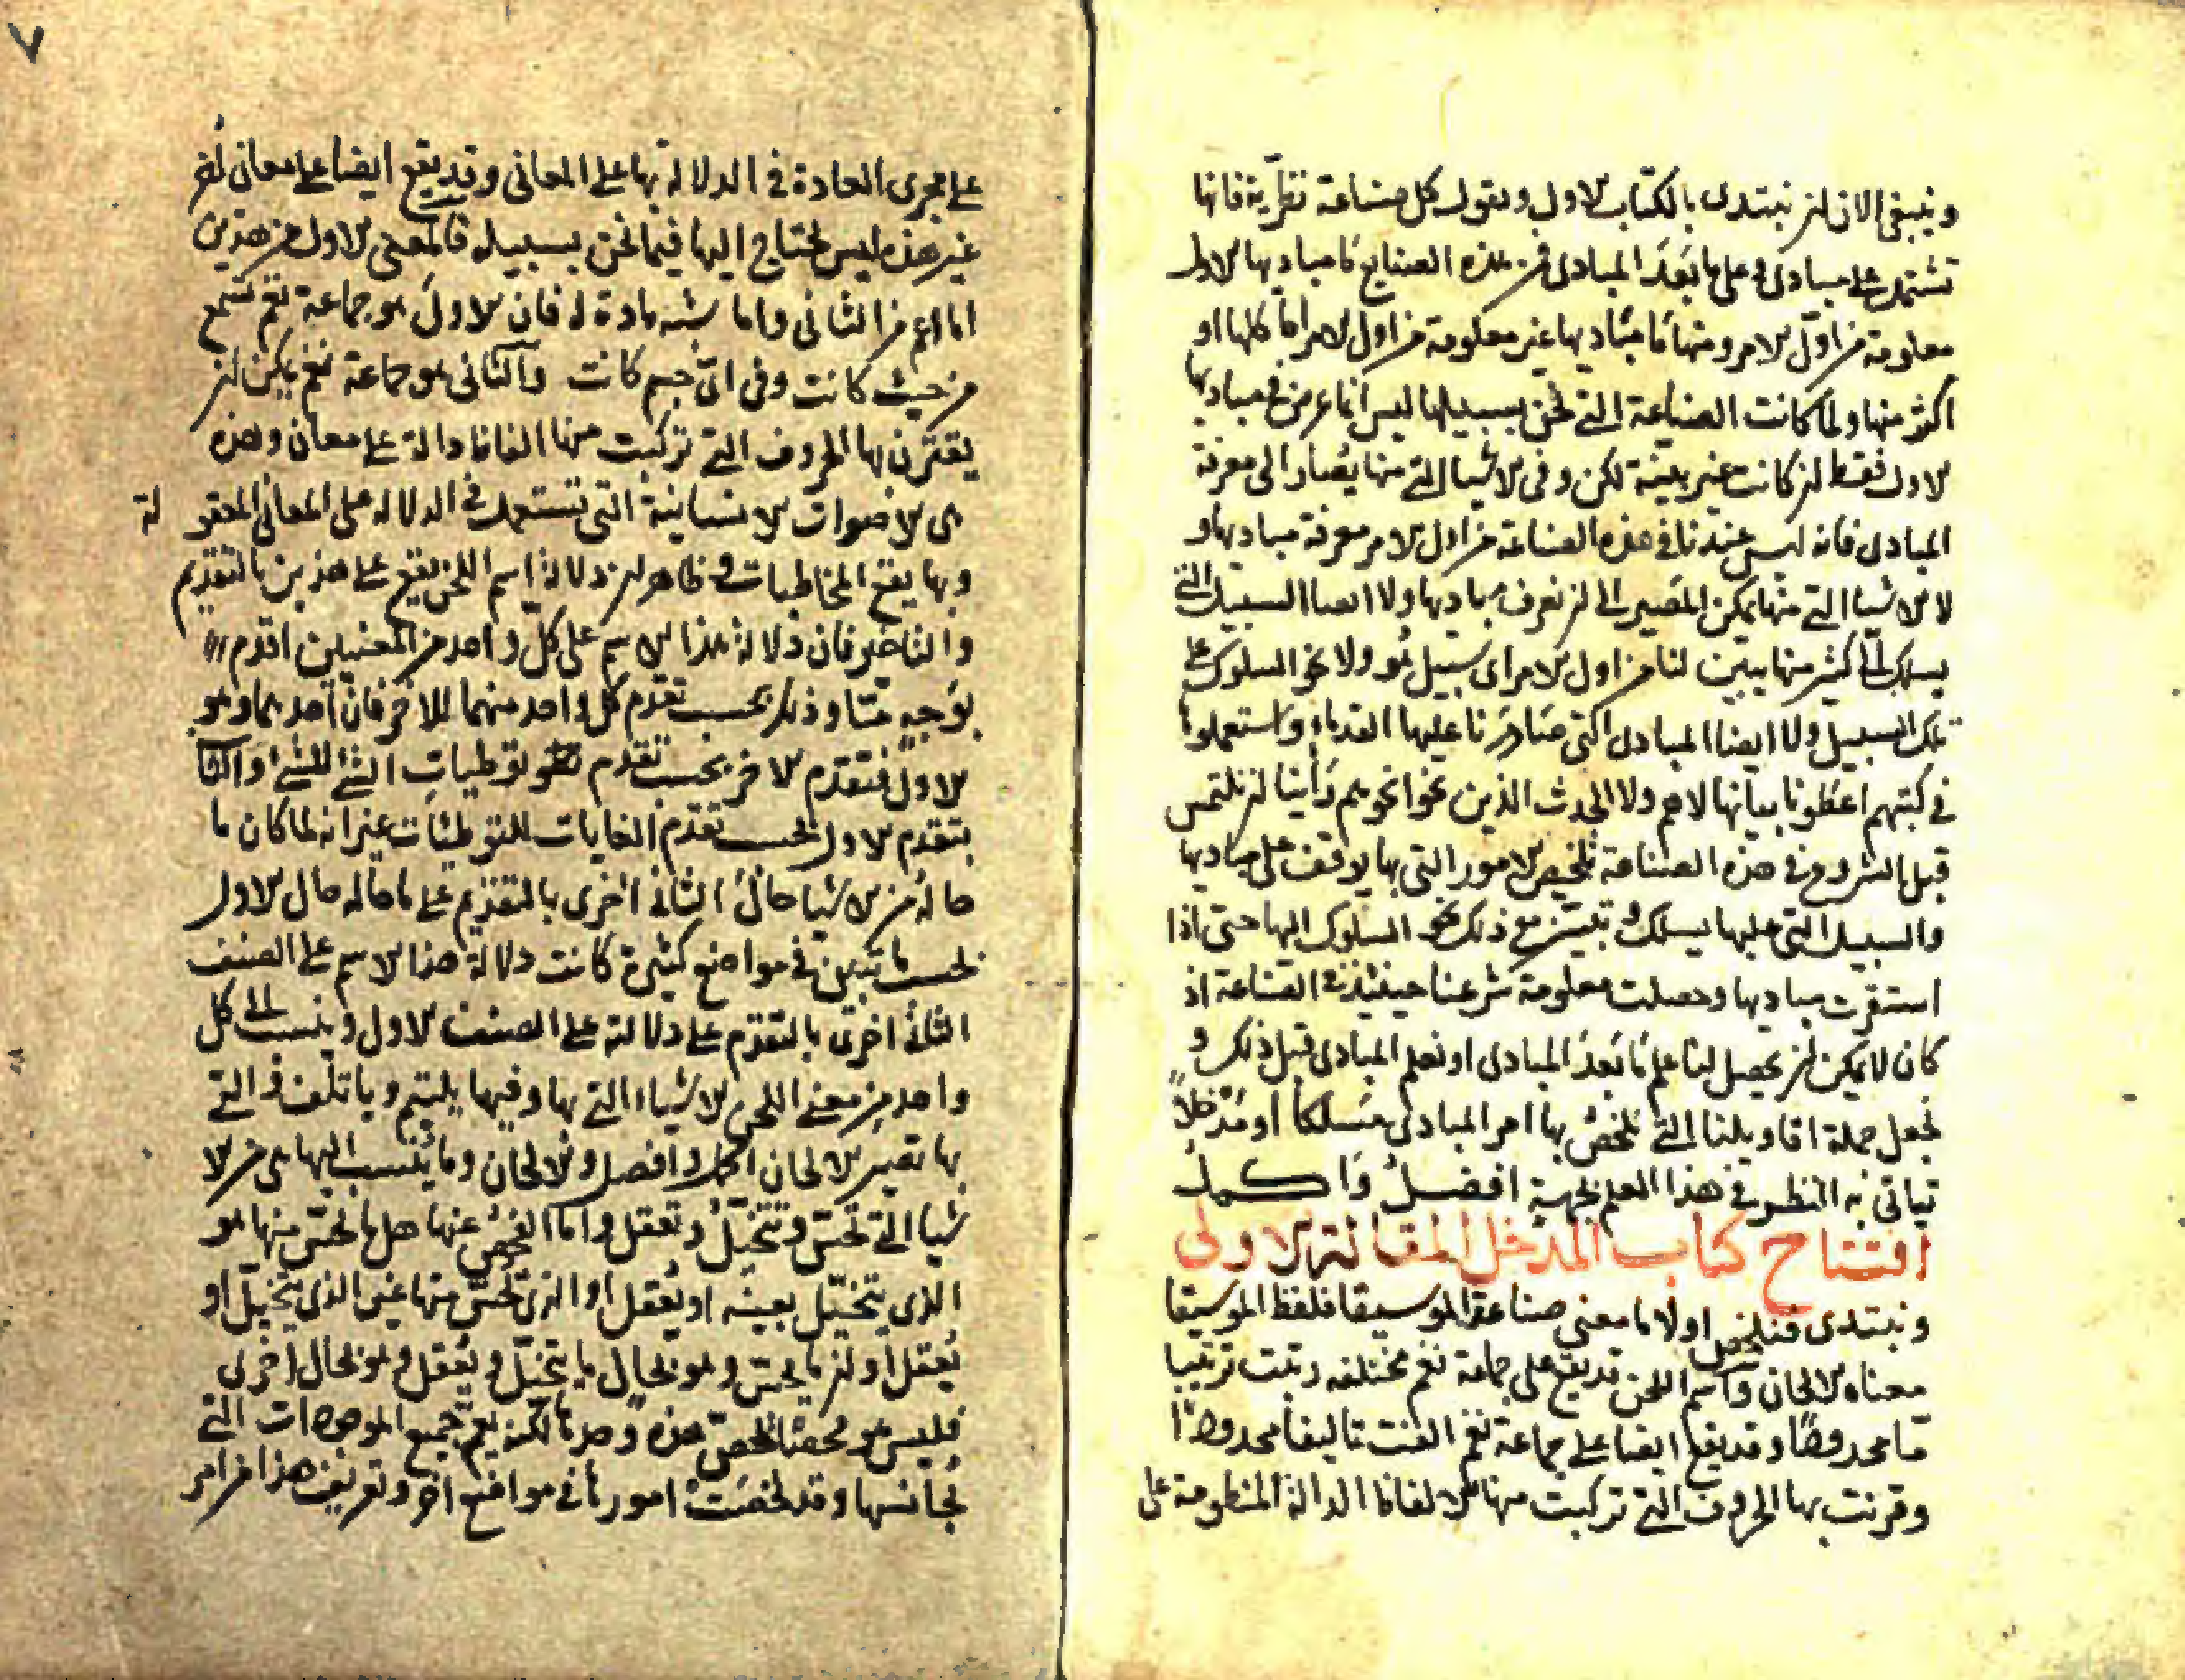 وينبغي الان ان نبتدى بالكتاب الاول ونقول كل صناعة نظرية فانها
تشتمل على مبادى وعلى ما بعد المبادى فمن هذه الصنايع ما مباديها الاول
معلومة من اول الامر ومنها ما مباديها غير معلومة من اول الامر اما كلها او
اكثر منها ولما كانت الصناعة التي نحن بسبيلها ليس انما عرض في مباديها
الاول فقط ان كانت غير بينة لكن وفي الاشيا التي منها يصار الى معرفة
المبادى فانه ليس عندنا في هذه الصناعة من اول الامر معرفة مباديها و
لا الاشيا التي منها يمكن المصير الى ان نعرف مباديها ولا ايضا السبيل التي
يسلك الى كثير منها يبين لنا من اول الامر اى سبيل هو ولا نحو السلوك على
تلك السبيل ولا ايضا المبادى التي صادرنا عليها القدماء واستعملوها
في كتبهم اعطونا بيانها لا هم ولا الحدث الذين نحوا نحوهم راينا ان نلتمس
قبل الشروع في هذه الصناعة تلخيص الامور التي بها يوقف على مباديها
والسبيل التي عليها يسلك و تبين مع ذلك نحو السلوك اليها حتى اذا
استقرت مباديها وحصلت معلومة شرعنا حينئذ في الصناعة اذ
كان لا يمكن ان يحصل لنا علم ما بعد المبادى او نعلم المبادى قبل ذلك و
نجعل جملة اقاويلنا التي نلخص بها امر المبادى مسلكا او مدخلاً
تياتى به النظر في هذا العلم بجهة افضل وا كمل
افتتاح كتاب المدخل المقالة الاولى
ونبتدى فنلخص اولا ما معنى صناعة الموسيقا فلفظ الموسيقا
معناه الالحان واسم اللحن قد يقع على جماعة نغم مختلفه رتبت ترتيبا
مّا محدودًا وقد يقع ايضا على جماعة نغم الفت تاليفا محدودًا
وقرنت بها الحروف التي تركبت منها الالفاظ الدالة المنظومة على
٧
على مجرى العادة في الدلالة بها على المعانى وقد يقع ايضا على معانى اخر
غير هذه ليس نحتاج اليها فيما نحن بسبيله فالمعنى الاول من هذين
اما اعم من الثانى واما شبه مادة له فان الاول هو جماعة نغم تسمع
من حيث كانت وفى اىّ جسم كانت والثانى هو جماعة نغم يمكن ان
يقترن بها الحروف التي تركبت منها الفاظ دالة على معان وهذه
هى الاصوات الانسانية التى تستعمل في الدلاله على المعانى المعقو لة
وبها يقع المخاطبات و ظاهر ان دلالة اسم اللحن يقع على هذين بالتقديم
والتاخير فان دلالة هذا الاسم على كل واحد من المعنيين اقدم
بوجهٍ مّا وذلك بحسب تقدم كل واحد منهما للاخر فان احدهما وهو
الاول فتقدم الاخر بحسب تقدم توطيات الشئ للشئ والثانى
بتقدم الاول بحسب تقدم الغايات للتوطئات غير انه لما كان ما
حاله من الاشيا حال الثانى اخرى بالتقديم على ما حاله حال الاول
بحسب ما تبين في مواضع كثيرة كانت دلالة هذا الاسم على الصنف
الثانى اخرى بالتقدم على دلالته على الصنف الاول وينسب الى كل
واحد من معنى اللحن الاشياء التي بها وفيها يلتئم ويا تلف و التي
بها تصير الالحان اكمل وافضل والالحان وما ينسب اليها هى من الا
شيا التي تحسّ وتتخيّل وتعقل واما الفحص عنها هل ما تحسّ منها هو
الذى يتخيّل بعينه او يعقل او الذى تحسّ منها غير الذى يتخيل او
يعقل او ان ما يحسّ وهو بحال ما يتخيّل ويعقل وهو بحال اخرى
فليس هو فحصًا يخصّ هذه وحدها لكنه يعم جميع الموجودات التي
تجانسها وقد لخصت امورها في مواضع اخر وتعريف هذا من امر